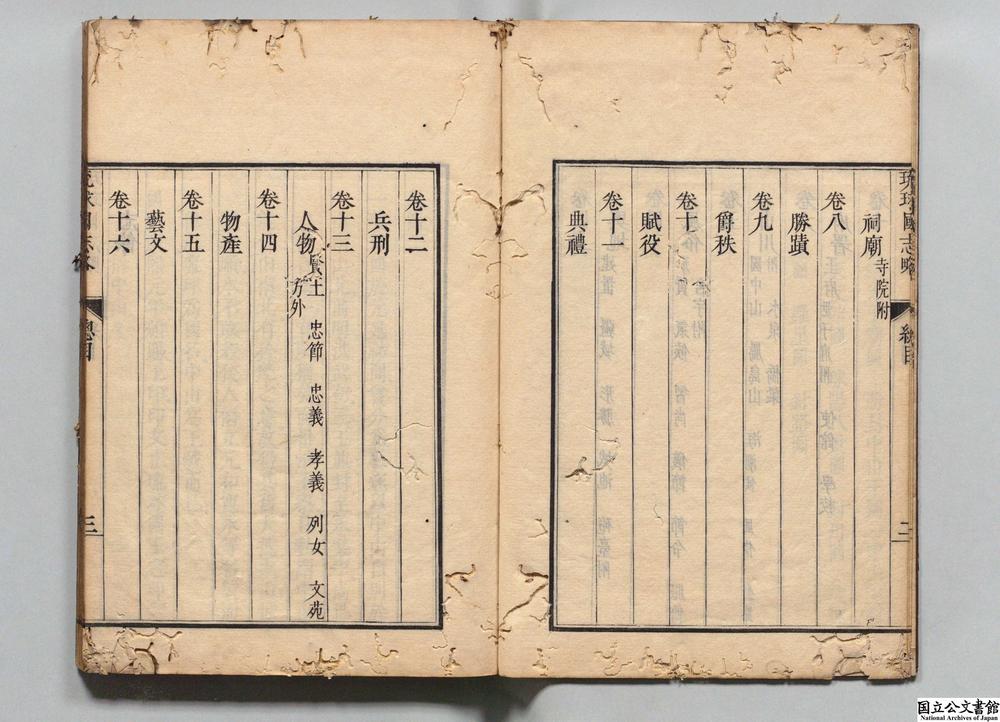 琉球國志略 總目 二
祠廟 寺院附
卷八
勝蹟
卷九
爵秩
卷十
賦役
卷十一
典禮
卷十二
兵刑
卷十三
人物 賢王 忠節 忠義 孝義 列女 文苑
方外
卷十四
物產
卷十五
藝文
卷十六
總目 三
国立公文書館
National Archives of Japan